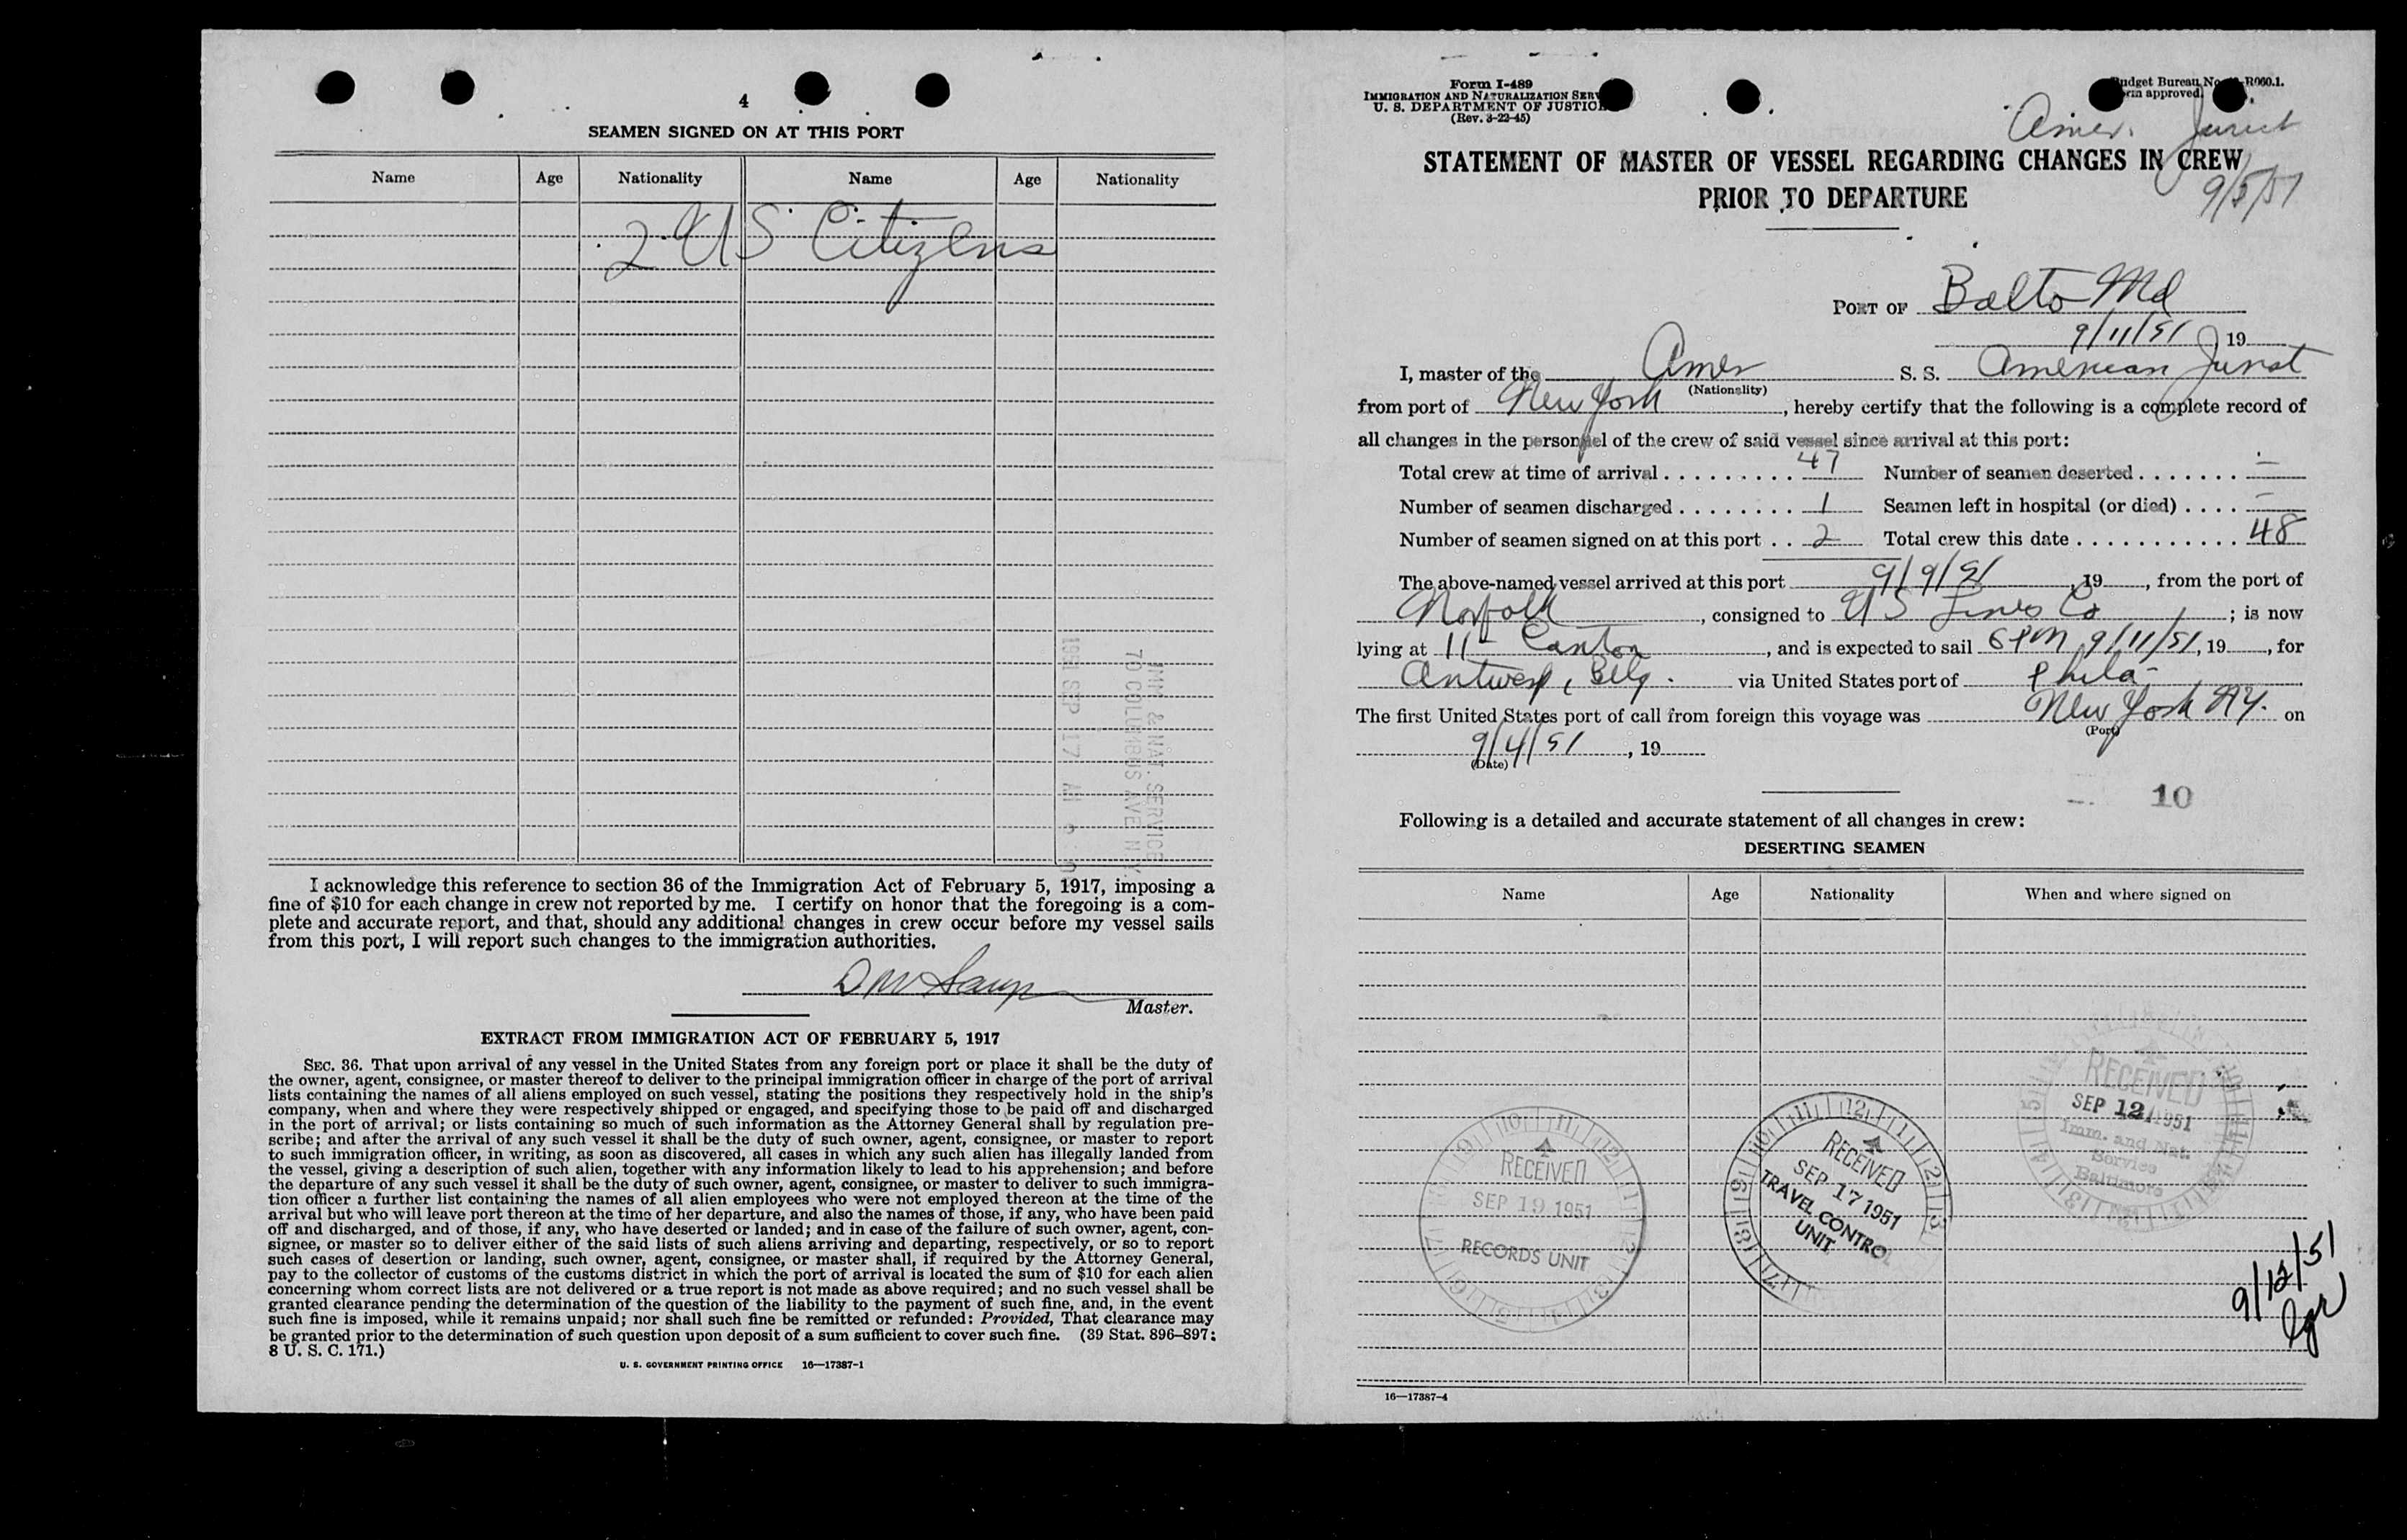 4
SEAMEN SIGNED ON AT THIS PORT
Name Age Nationality Name Age Nationality
2 US Citizens
IMM & NAT. SERVICE
70 COLUMBUS AVE N.Y.
1951 SEP 17 AM
I acknowledge this reference to section 36 of the Immigration Act of February 5, 1917, imposing a
fine of $10 for each change in crew not reported by me. I certify on honor that the foregoing is a com-
plete and accurate report, and that, should any additional changes in crew occur before my vessel sails
from this port, I will report such changes to the immigration authorities.
Master.
EXTRACT FROM IMMIGRATION ACT OF FEBRUARY 5, 1917
SEC. 36. That upon arrival of any vessel in the United States from any foreign port or place it shall be the duty of
the owner, agent, consignee, or master thereof to deliver to the principal immigration officer in charge of the port of arrival
lists containing the names of all aliens employed on such vessel, stating the positions they respectively hold in the ship's
company, when and where they were respectively shipped or engaged, and specifying those to be paid off and discharged
in the port of arrival; or lists containing so much of such information as the Attorney General shall by regulation pre-
scribe; and after the arrival of any such vessel it shall be the duty of such owner, agent, consignee, or master to report
to such immigration officer, in writing, as soon as discovered, all cases in which any such alien has illegally landed from
the vessel, giving a description of such alien, together with any information likely to lead to his apprehension; and before
the departure of any such vessel it shall be the duty of such owner, agent, consignee, or master to deliver to such immigra-
tion officer a further list containing the names of all alien employees who were not employed thereon at the time of the
arrival but who will leave port thereon at the time of her departure, and also the names of those, if any, who have been paid
off and discharged, and of those, if any, who have deserted or landed; and in case of the failure of such owner, agent, con-
signee, or master so to deliver either of the said lists of such aliens arriving and departing, respectively, or so to report
such cases of desertion or landing, such owner, agent, consignee, or master shall, if required by the Attorney General,
pay to the collector of customs of the customs district in which the port of arrival is located the sum of $10 for each alien
concerning whom correct lists are not delivered or a true report is not made as above required; and no such vessel shall be
granted clearance pending the determination of the question of the liability to the payment of such fine, and, in the event
such fine is imposed, while it remains unpaid; nor shall such fine be remitted or refunded: Provided, That clearance may
be granted prior to the determination of such question upon deposit of a sum sufficient to cover such fine. (39 Stat. 896–897;
8 U. S. C. 171.)
U. S. GOVERNMENT PRINTING OFFICE 16—17387-1
Form I-489
IMMIGRATION AND NATURALIZATION SERV
U. S. DEPARTMENT OF JUSTICE
(Rev. 3-22-45)
Budget Bureau No. R060.1.
Form approved.
Amer. Jurist
9/5/51
STATEMENT OF MASTER OF VESSEL REGARDING CHANGES IN CREW
PRIOR TO DEPARTURE
PORT OF Balto Md
9/11/51 19
I, master of the Amer S. S. American Jurist
(Nationality)
from port of New York, hereby certify that the following is a complete record of
all changes in the personnel of the crew of said vessel since arrival at this port:
Total crew at time of arrival 47 Number of seamen deserted –
Number of seamen discharged 1 Seamen left in hospital (or died) –
Number of seamen signed on at this port 2 Total crew this date 48
The above-named vessel arrived at this port 9/9/51, 19, from the port of
Norfolk, consigned to US Lines Co; is now
lying at 11 - Canton, and is expected to sail 6 PM 9/11/51, 19, for
Antwerp, Belg. via United States port of Phila-
The first United States port of call from foreign this voyage was New York NY. on
(Port)
9/4/51, 19
(Date)
10
Following is a detailed and accurate statement of all changes in crew:
DESERTING SEAMEN
Name Age Nationality When and where signed on
RECEIVED
SEP 12 1951
Imm. and Nat.
Service
Baltimore
RECEIVED
SEP 17 1951
TRAVEL CONTROL
UNIT
RECEIVED
SEP 19 1951
RECORDS UNIT
9/12/51
16—17387-4